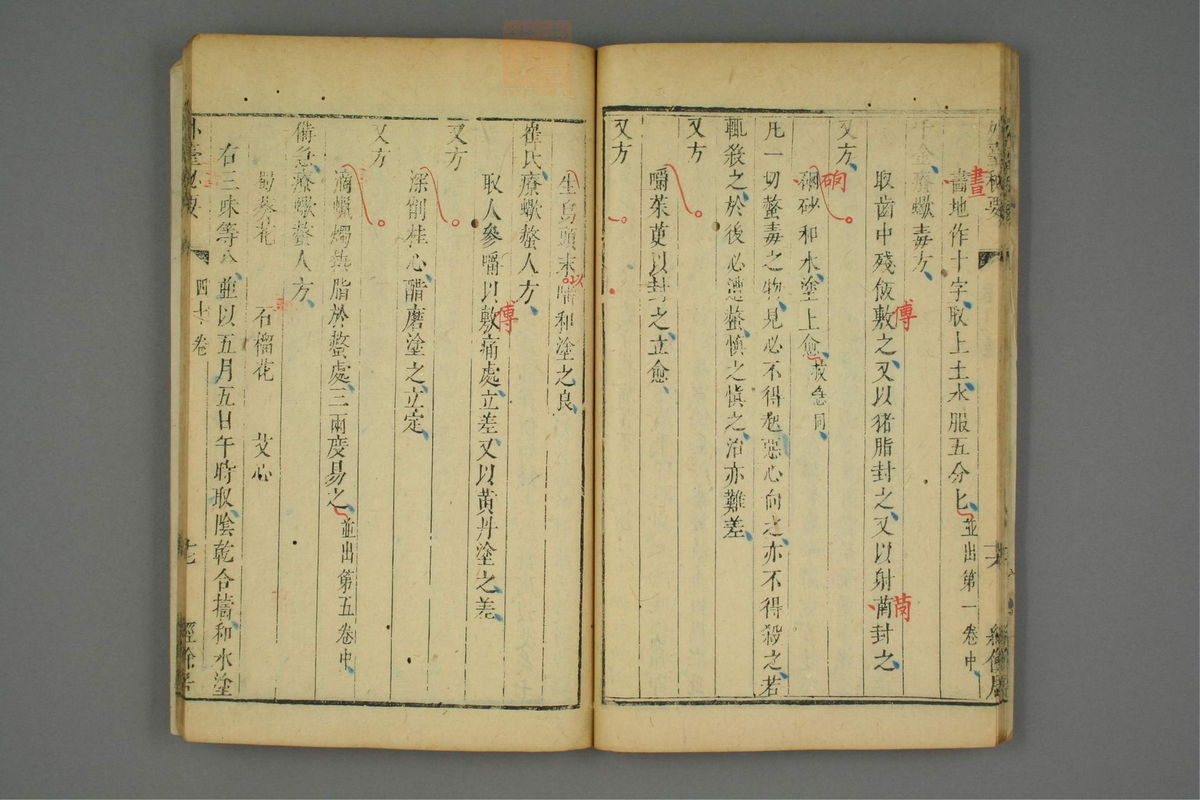 畫地作十字取上土水服五分匕並出第一卷中
千金療蠍毒方
取齒中殘飯敷之又以猪脂封之又以射菵封之
又方
硇砂和水塗上愈救急同
凡一切螫毒之物見必不得起惡心向之亦不得殺之若
輒殺之於後必遭螫慎之慎之治亦難差
又方
嚼茱萸以封之立愈
又方
生烏頭末嚼和塗之良
崔氏療蠍螫人方
取人參嚼以敷痛處立差又以黃丹塗之差
又方
深削桂心醋磨塗之立定
又方
滴蠟燭熱脂於螫處三兩度易之並出第五卷中
備急療蠍螫人方
蜀葵花 石榴花 艾心
右三味等分並以五月五日午時取陰乾合擣和水塗
外臺秘要 四十卷 十七 經餘居
畫
傅
硇
菵
以
傅